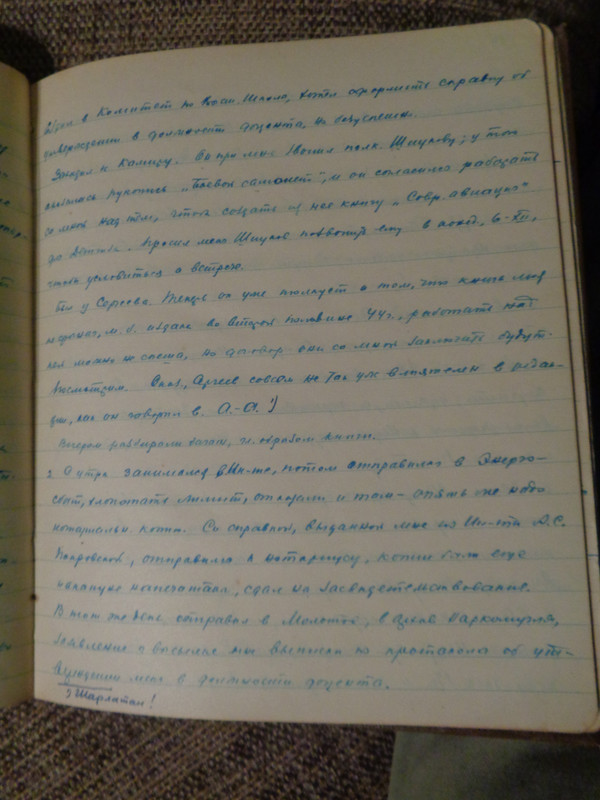 в Комитет по Высш. Школе, хотел оформить справку об
утверждении в должности доцента, но безуспешно.
Заходил к Камицу. Он при мне звонил полк. Шиукову; у того
имелась рукопись „Боевой самолет", и он согласился работать
со мной над тем, чтоб создать из нее книгу „Совр. авиация"
Просил меня Шиуков позвонить ему в понед., 6-XII,
чтоб условиться о встрече.
Был у Сергеева. Теперь он уже толкует о том, что книга моя
м. б. издана во второй половине 44 г., работать над
ней можно не спеша, но договор они со мной заключить будут
Сергеев совсем не так уж влиятелен в редак-
ции, как он говорил в А.-А. ¹)
Вечером разбирали багаж, гл. образом книги.
2. С утра занимался в Ин-те, потом отправился в Энерго-
сбыт, хлопотать лимит, отказали и там – опять же надо
нотариальн. копии. Со справкой, выданной мне из Ин-та Д.С.
Покровской, отправился к нотариусу, копии были еще
накануне напечатал, сдал на засвидетельствование.
В тот же день отправил в Молотов, в архив Наркомугля,
заявление о высылке мне выписки из протокола об утв-
ерждении меня в должности доцента.
¹) Шарлатан!